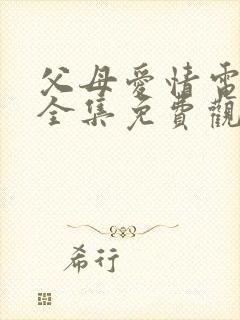 父母愛情電
全集免費觀
希行